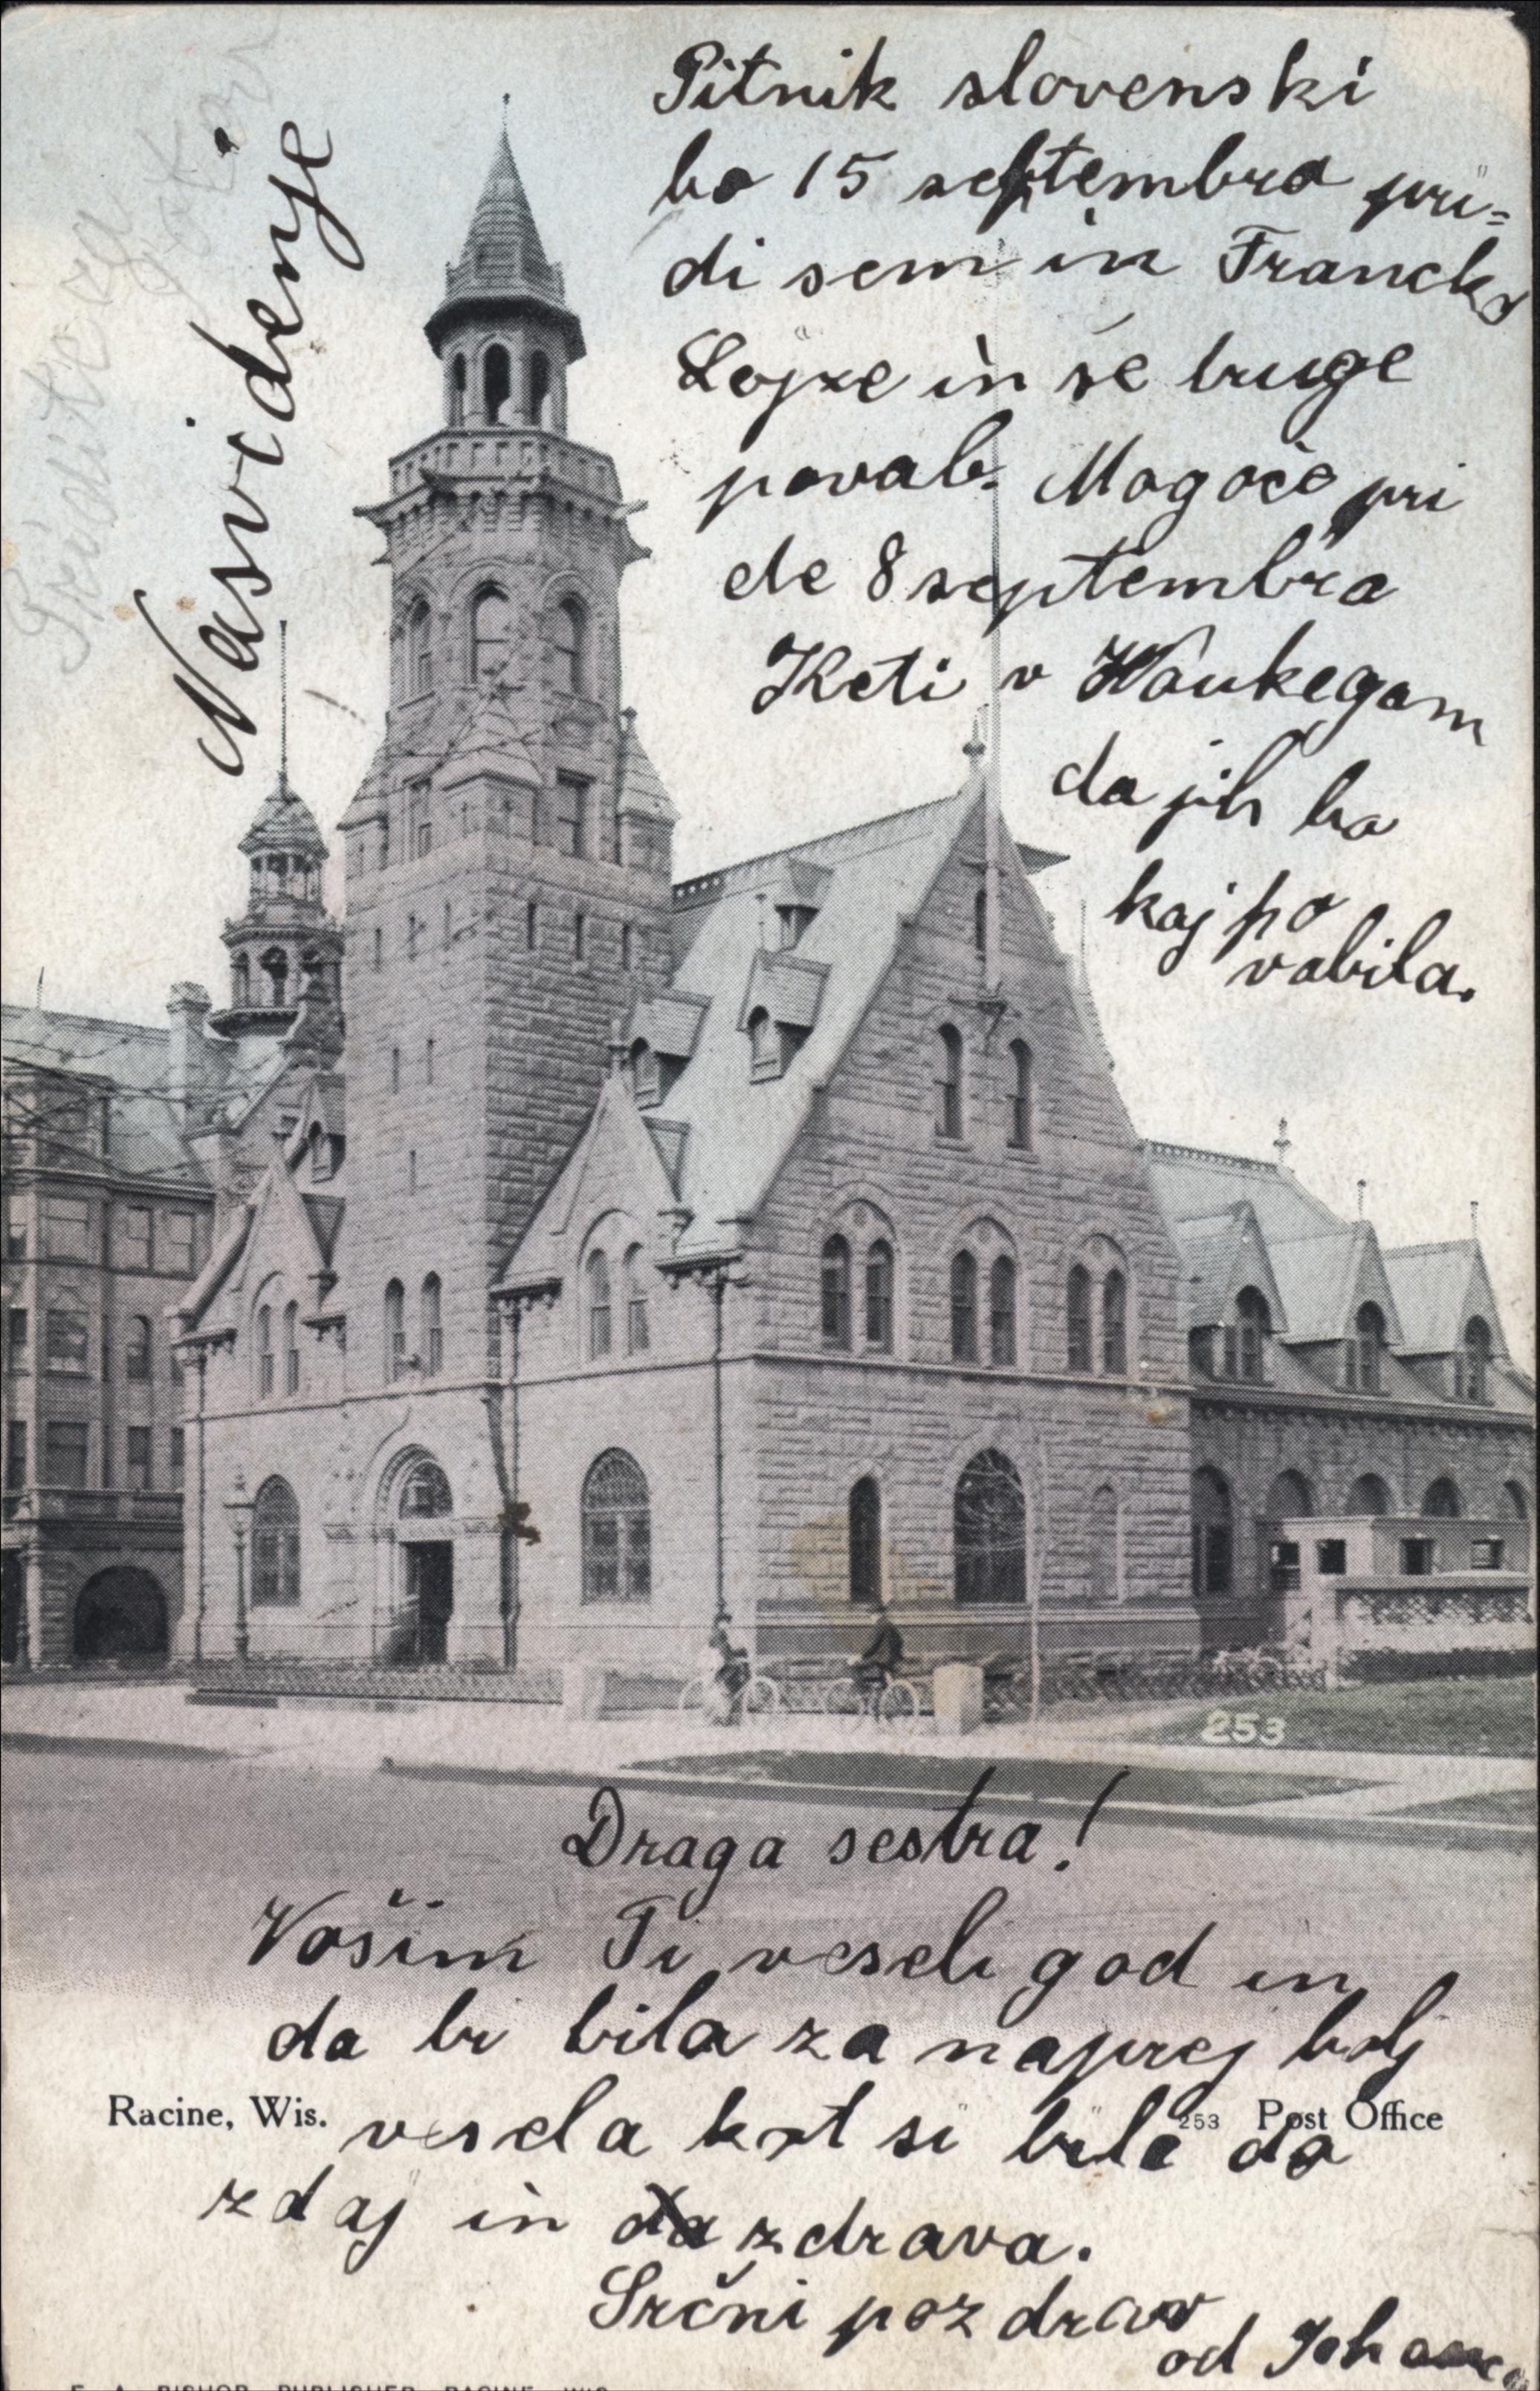 Pitnik slovenski
bo 15 septembra pri=
di sem in Francka
Lojze in še druge
povab. Mogoče pri
de 8 septembra
Keti v Waukegam
da jih bo
kaj po
vabila.
Nasvidenje
Pridite za
253
Draga sestra!
Vošim Ti veseli god in
da bi bila za naprej bolj
Racine, Wis.
253 Post Office
vesela kot si bila do
zdaj in zdrava.
Srčni pozdrav
od
E. A. BISHOP, PUBLISHER, RACINE, WIS.